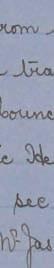 rom
tra
bounc
ic He
sec
Wm Jas